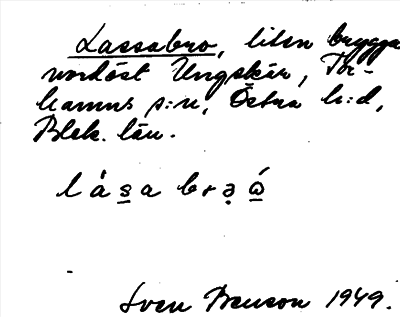 Lassabro, liten brygga
nordöst Ungskär, Tor-
hamns s:n, Östra h:d,
Blek. län.
Sven Benson 1949.